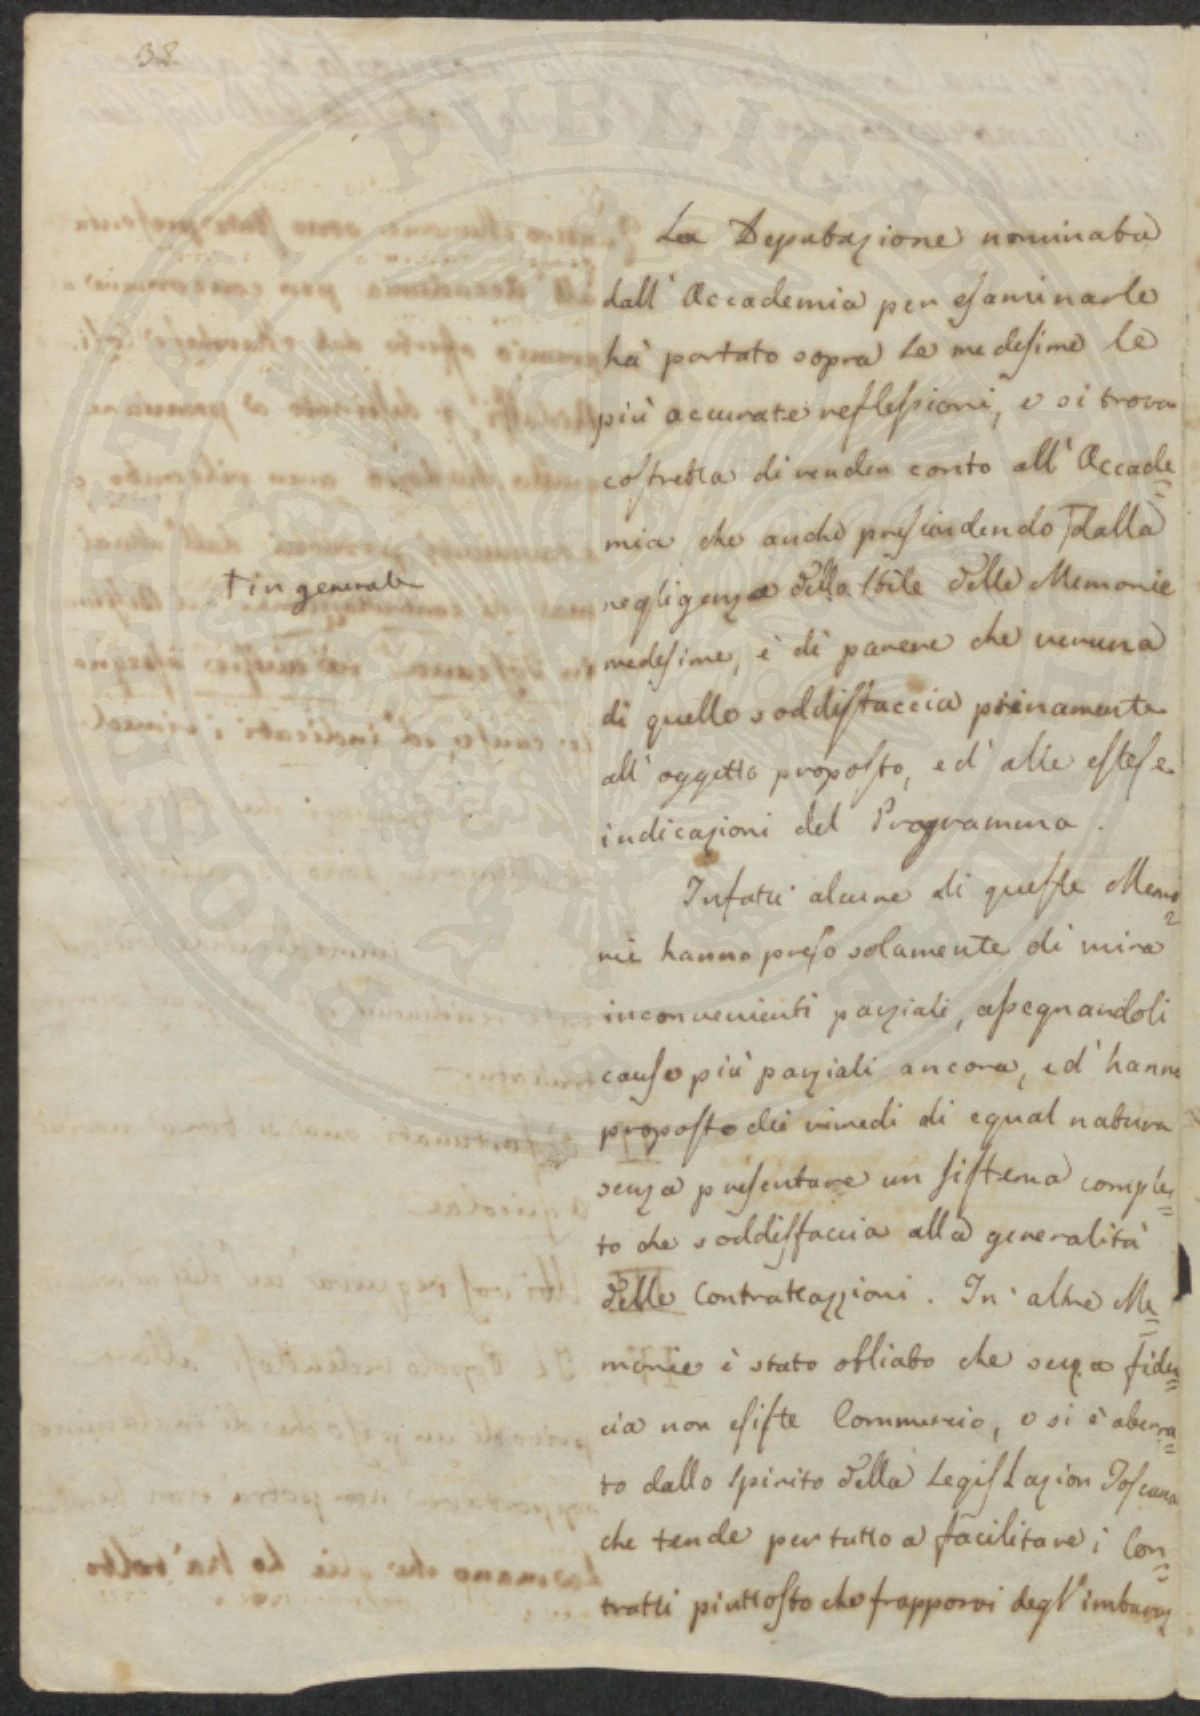 38
La Deputazione nominata
dall' Accademia per esaminarle
ha' portato sopra le medesime le
più accurate reflessioni, e si trova
costretta di render conto all' Accade=
mia che anche prescindendo † dalla
† in generale
negligenza dello stile delle Memorie
medesime, è di parere che veruna
di quelle soddisfaccia pienamente
all' oggetto proposto, ed' alle estese
indicazioni del Programma.
Infatti alcune di queste Memo=
rie hanno preso solamente di mira
inconvenienti parziali, assegnandoli
cause più parziali ancora, ed' hanno
proposto dei rimedi di egual natura
senza presentare un sistema comple=
to che soddisfaccia alla generalità
delle Contrattazzioni. In altre Me=
morie è stato obliato che senza fidu=
cia non esiste Commercio, e si è aberra=
to dallo spirito della Legislazion Toscana
che tende per tutto a facilitare i Con=
tratti piuttosto che frapporvi degl' imbaraz